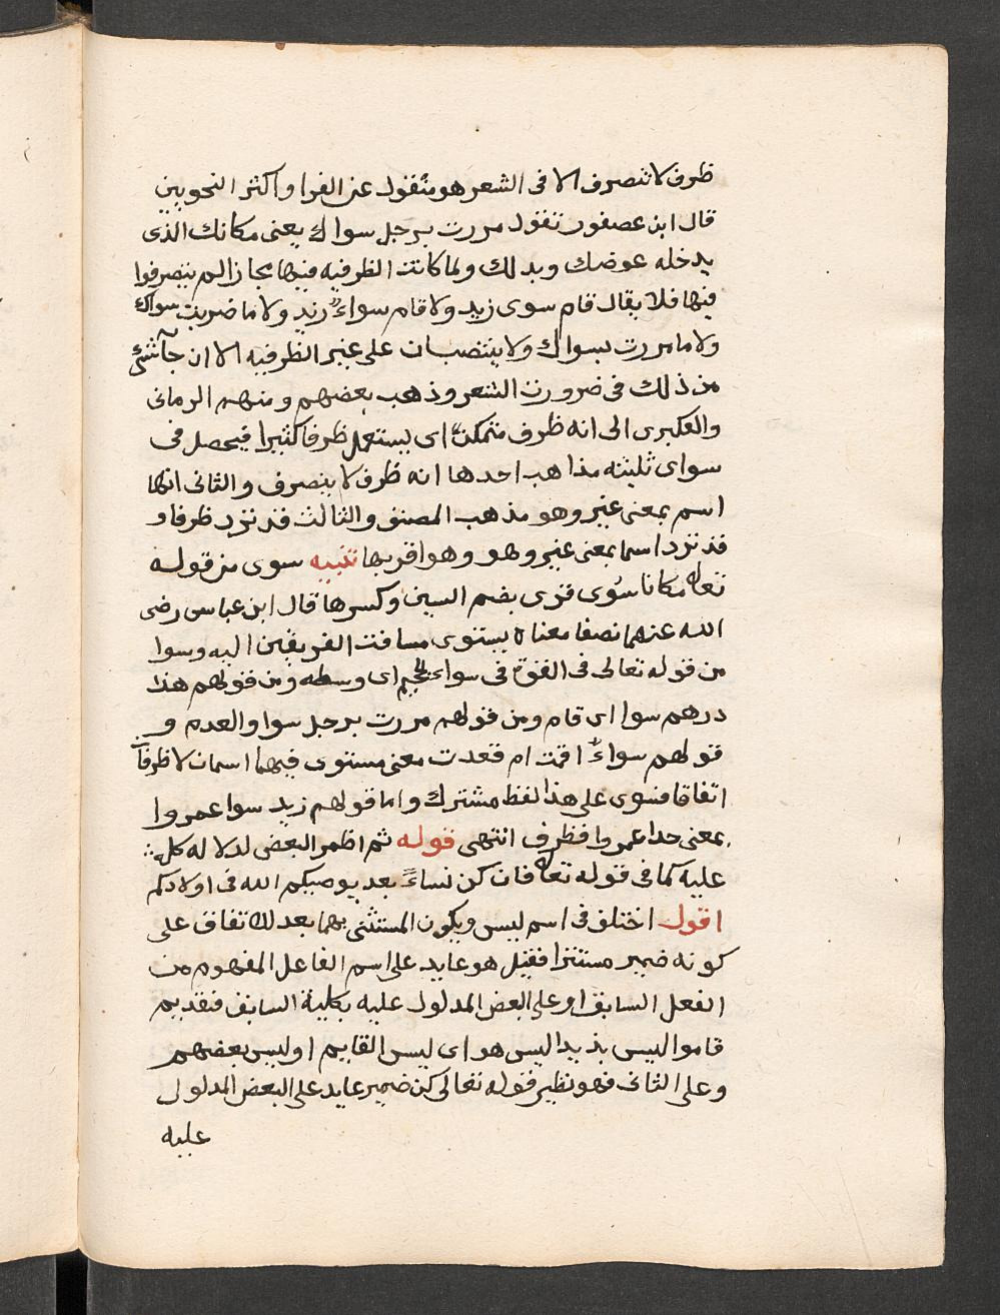 ظرف لا تنصرف الا فى الشعر هو منقول عن الفرا واكثر النحويين
قال ابن عصفور تقول مررت برجل سواك يعنى مكانك الذى
يدخله عوضك وبدلك ولما كانت الظرفيه فيها مجازا لم يتصرفوا
فيها فلا يقال قام سوى زيد ولا قام سواء زيد ولا ما ضربت سواك
ولا ما مررت بسواك ولا ينتصبان على غير الظرفيه الا ان جآ شئ
من ذلك فى ضرورت الشعر وذهب بعضهم ومنهم الرمانى
والعكبرى الى انه ظرف متمكن اى يستعمل ظرفا كثيرا فيحصل فى
سواى ثلثته مذاهب احدها انه ظرف لا يتصرف والثانى انها
اسم بمعنى غير وهو مذهب المصنف والثالث قد ترد ظرفا و
قد ترد اسما بمعنى غير وهو وهو اقربها تنبيه سوى من قوله
تعالى مكانا سوى قرى بضم السين وكسرها قال ابن عباس رضى
الله عنهما نصفا معناه يستوى مسافت الفريقين اليه وسوا
من قوله تعالى فى القوة فى سواء الجحيم اى وسطه ومن قولهم هذا
درهم سوا اى قام ومن قولهم مررت برجل سوا والعدم و
قولهم سواء اقمت ام قعدت معنى مستوى فيهما اسمان لا ظرفان
اتفاقا فسوى على هذا لفظ مشترك واما قولهم زيد سوا عمروا
بمعنى حدا عمروا فظرف انتهى قوله ثم اظمر البعض لدلاله كل
عليه كما فى قوله تعالى فان كن نساء بعد يوصيكم الله فى اولادكم
اقول اختلف فى اسم ليس ويكون المستثنى بهما بعد للاتفاق على
كونه ضمير مستترا فقيل هو عايد على اسم الفاعل المفهوم من
الفعل السابق او على البعض المدلول عليه بكلية السابق فتقديم
قاموا ليس بذ يدا ليس هو اى ليس القايم او ليس بعضهم
وعلى الثانى فهو نظير قوله تعالى كن ضمير عايد على البعض المدلول
عليه